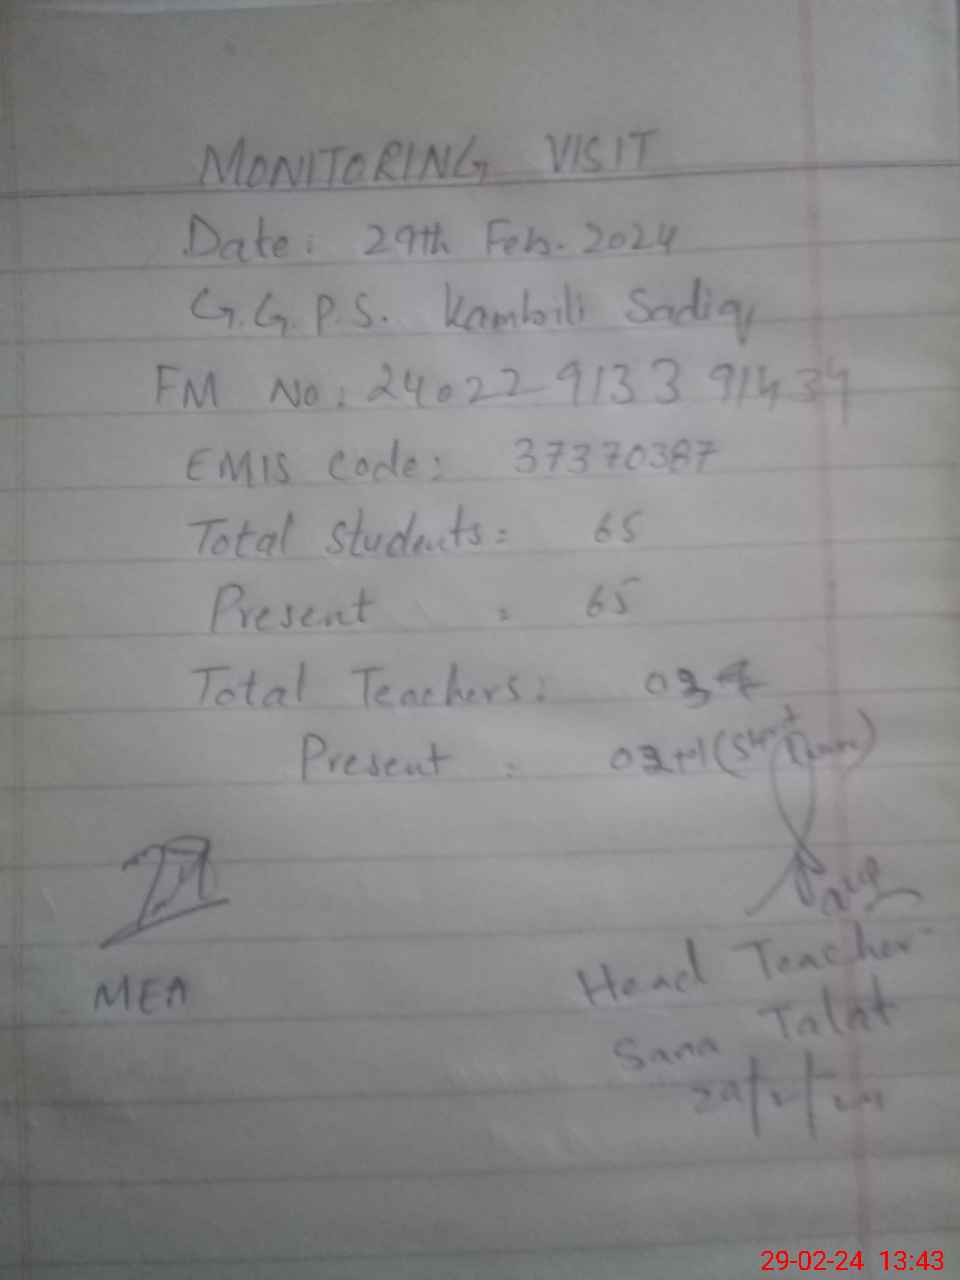 MONITORING VISIT
Date: 29th Feb. 2024
G.G.P.S. Kambili Sadiq
FM No: 24022 9133 91434
EMIS Code: 37370387
Total Students: 65
Present : 65
Total Teachers: 4
Present :
MEA
Head Teacher
Sana Talat
29-02-24 13:43